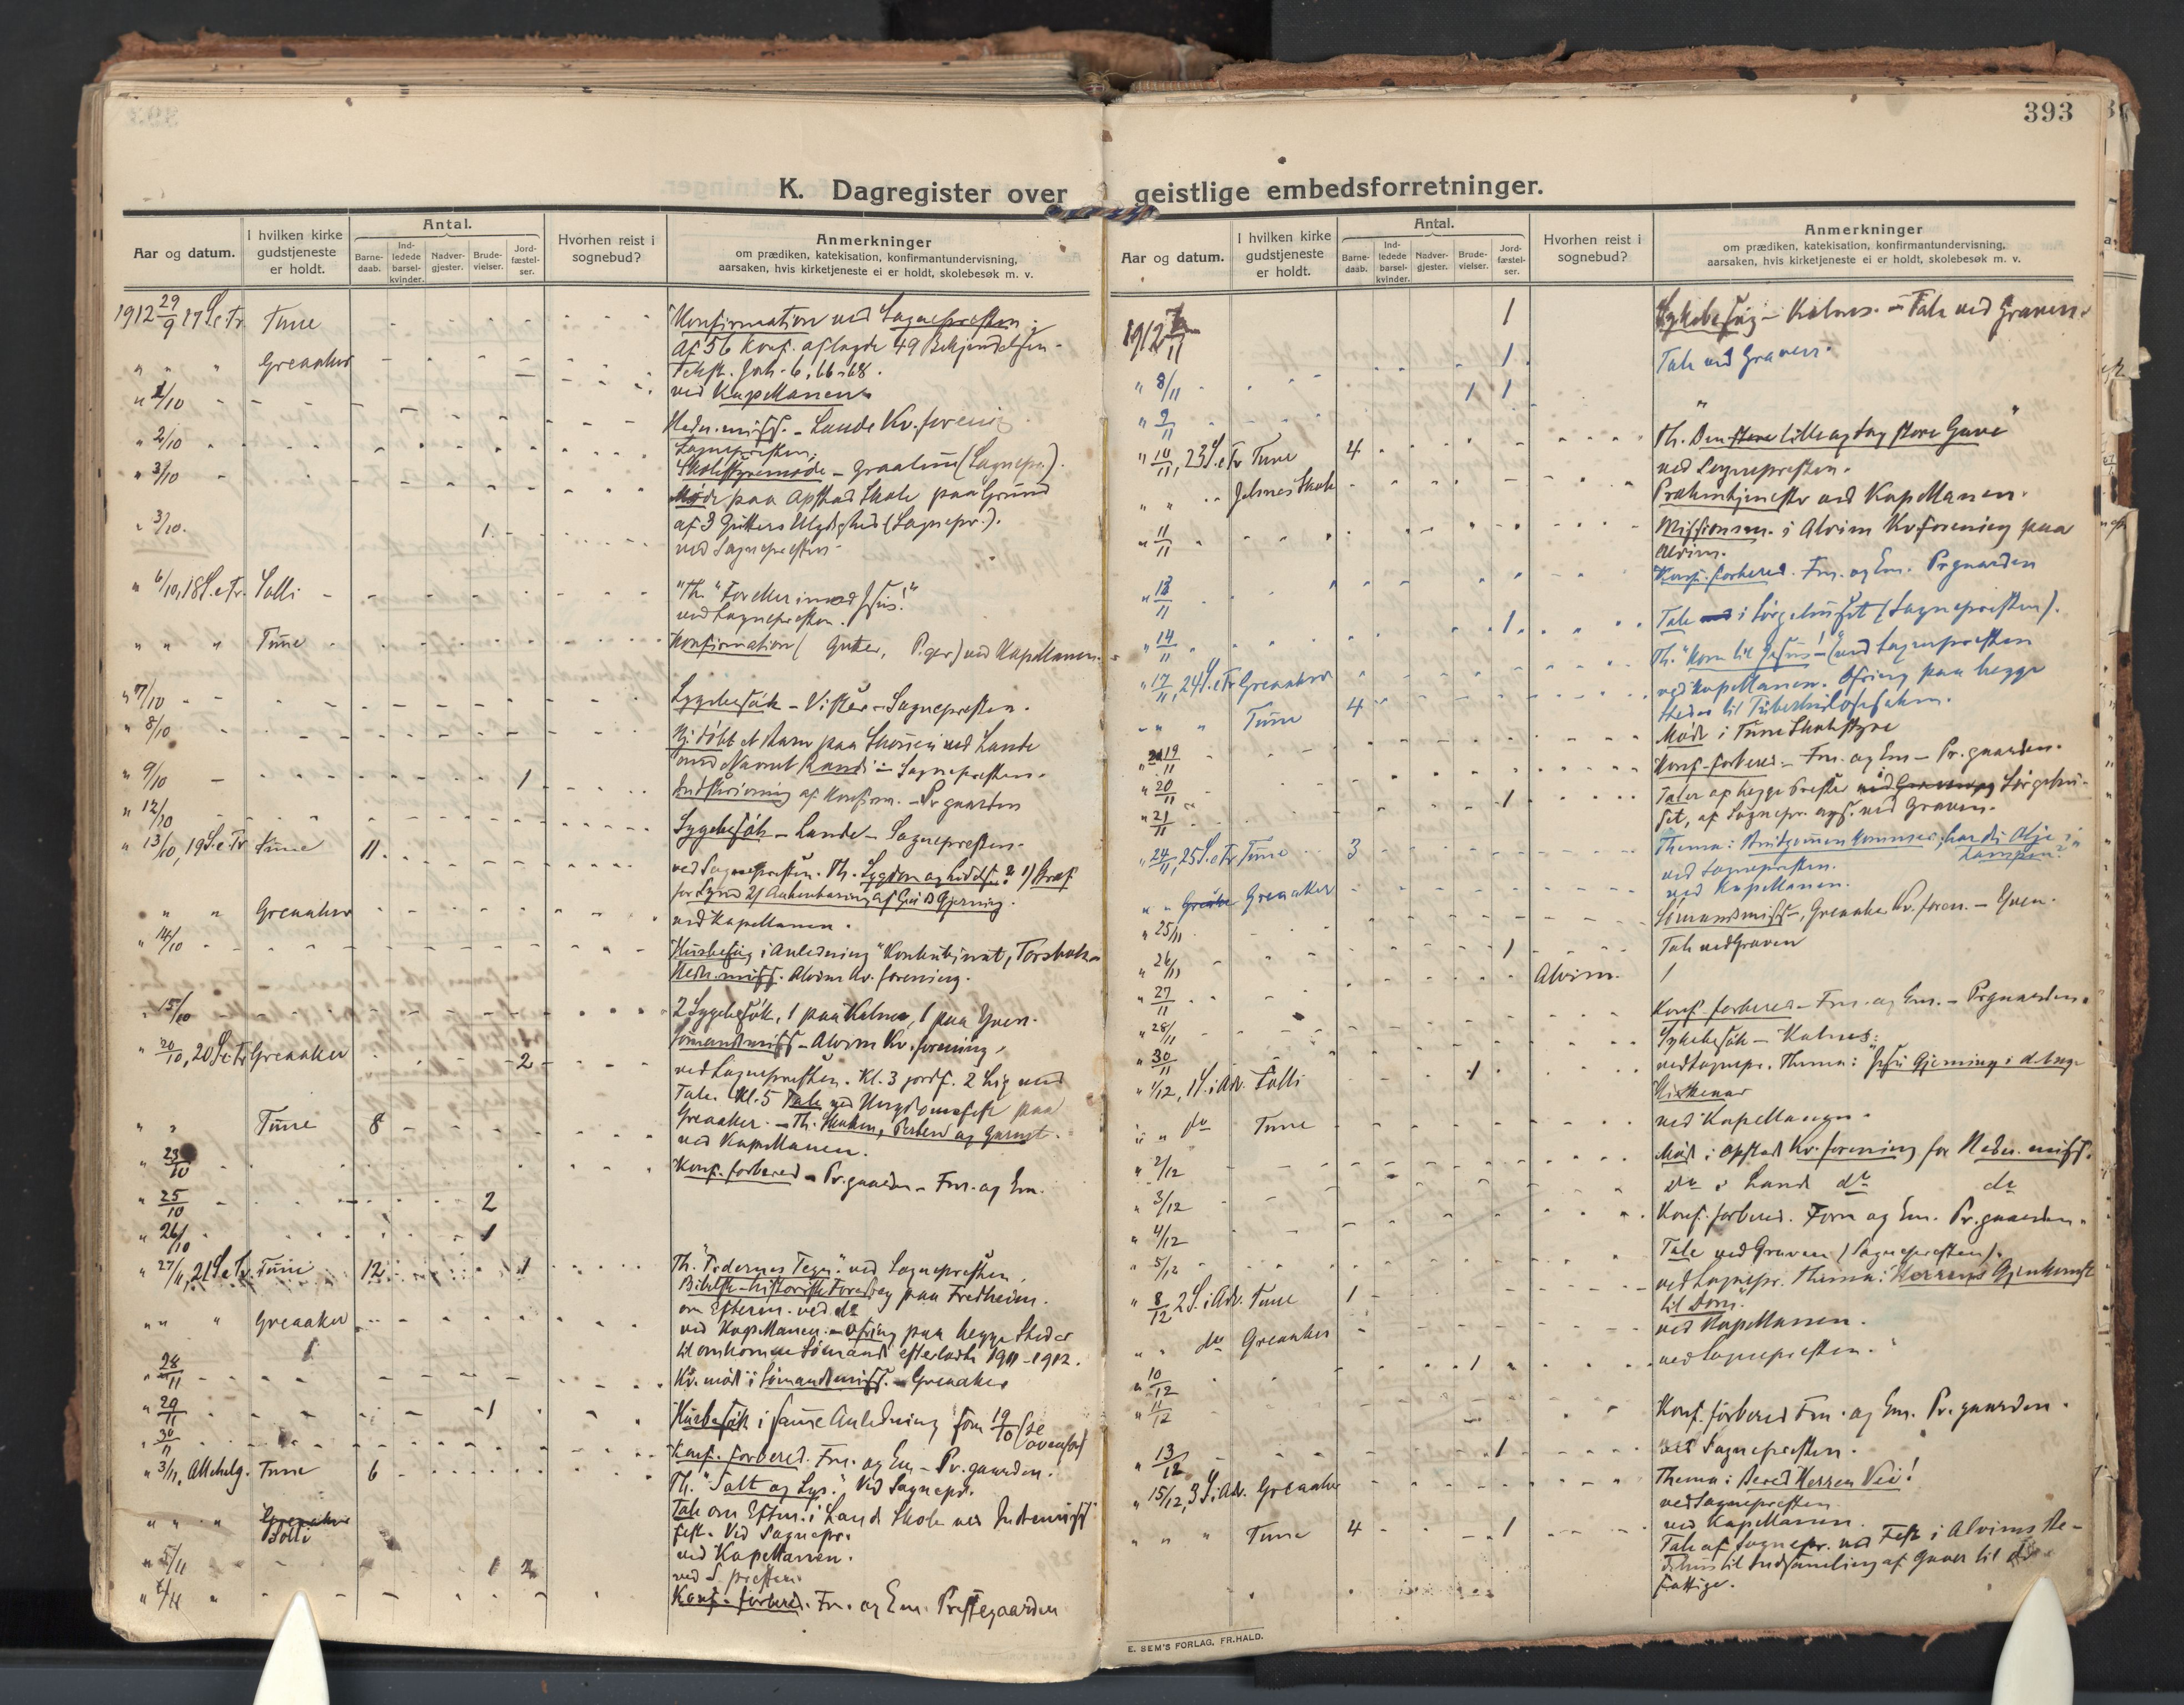 393
K. Dagregister over geistlige embedsforretninger.
Aar og datum.
I hvilken kirke gudstjeneste er holdt.
Antal.
Barnedaab.
Indledede barselkvinder.
Nadvergjester.
Brudevielser.
Jordfæstelser.
Hvorhen reist i sognebud?
Anmerkninger
om prædiken, katekisation, konfirmantundervisning,
aarsaken, hvis kirketjeneste ei er holdt, skolebesøk m. v.
1912 29/9 17 S.e.Tr. Tune Konfirmation ved Sognepresten.
Af 56 Konf. aflagde 49 Bekjendelsen
" " " Greaaker Tekst. Joh. 6, 66-68.
ved Kapellanen
" 1/10 Hedn.miss. - Lande Kv.forening
" 2/10 Sognepresten.
Skolestyremøde - Graalum (Sognepr.).
" 3/10 Møde paa Opstad Skole paa Grund
af 3 Gutters (Sognepr.).
" 3/10. 1 ved Sognepresten
" 6/10, 18 S.e.Tr. Solli "Th.
ved Sognepresten.
" " " Tune Konfirmation ( Gutter, Piger) ved Kapellanen.
" 7/10 Sygebesøk - Sognepresten.
" 8/10 Hj.døbt et Barn paa ved Lande
med Navnet Randi - Sognepresten.
" 9/10 1 Indskrivning af Konfirm. - Pr.gaarden
" 12/10 Sygebesøk - Lande - Sognepresten.
" 13/10, 19 S.e.Tr. Tune 11 ved Sognepresten. Th. Sygdom og Lidelse 1) Straf
for Synd 2) Aabenbaring af Guds Gjerning.
" " Greaaker ved Kapellanen.
" 14/10 Husbesøg i Anledning Konkubinat,
Hedn.miss. Alvim Kv.forening.
" 15/10 2 Sygebesøk, 1 paa Kalnes, 1 paa Yven.
Sømandsmiss - Alvim Kv.forening,
" 20/10, 20 S.e.Tr. Greaaker 2 ved Sognepresten. Kl. 3 jordf. 2 Lig med
Tale. Kl. 5 Tale ved Ungdomsfest paa
Greaaker. - Th.
" " Tune 8 ved Kapellanen.
" 23/10 Konf.forbered - Pr.gaarden - Fm. og Em.
" 25/10 2
" 26/10 1
" 27/11, 21 S.e.Tr. Tune 12 1 Th. "Tidernes Tegn". ved Sognepresten.
Bibelsk-historisk Foredrag paa Fredheim.
om Efterm. ved do
" " " Greaaker ved Kapellanen. - Ofring paa begge Steder
til omkomne Sømænds efterladte 1911-1912.
" 28/11 Kv.møde i Sømandsmiss. - Greaaker
" 29/11 1 Husbesøk i samme Anledning som 19/10 (se ovenfor)
" 30/11 Konf.forbered. Fm. og Em - Pr.gaarden.
" 3/11, Allehelg. Tune 6 Th. "Salt og Lys". Ved Sognepr.
Tale om Eftm. i Lande Skole ved Indremiss
fest. Ved Sognepr.
" " " Greaaker
Solli ved Kapellanen.
" 5/11 1 2 ved S.presten
" 6/11 Konf.forbered. Fm. og Em. Prestegaarden
1912 7/11 1 Sykebesøg - Kalnes. - Tale ved Graven.
" 8/11 1 Tale ved Graven.
" 9/11 1 1
" 10/11, 23 S.e.Tr. Tune 4 Th. Den store lille og dog store Gave"
ved Sognepresten.
" " Jelsnes Skole Prækentjeneste ved Kapellanen.
" 11/11 Missionsm. i Alvim Kv.forening paa
Alvim.
" 13/11 Konf.forbered. Fm. og Em. Prgaarden
" 14/11 1 Tale ved i Sørgehuset (Sognepresten).
" 17/11, 24 S.e.Tr. Greaaker Th. "Kom til Jesus" (ved Sognepresten
" " " Tune 4 ved Kapellanen. Ofring paa begge
Steder til Tuberkulosesaken.
" 19/11 Møde i Tune Skolestyre
" 20/11 Konf.forbered - Fm. og Em - Pr.gaarden.
" 21/11 1 Taler af begge Prester ved Graven og Sørgehu-
set, af Sognepr. ogs. ved Graven.
" 24/11, 25 S.e.Tr. Tune 3 Thema: Brudgommen kommer; har du Olje i
Lampen?
ved Sognepresten.
" " Greaaker ved Kapellanen.
" 25/11 Sømandsmiss -, Greaaker Kv.foren. - Yven.
" 26/11 1 Tale ved Graven
" 27/11 Alvim. 1
" 28/11 Konf.forbered - Fm. og Em. - Prgaarden.
" 30/11 Sykebesøk - Kalnes.
" 1/12, 1 S. i Adv. Solli 1 ved Sognepr. Thema: Jesu Gjerning i
" " do Tune ved Kapellanen.
" 2/12 Møde i Opstad Kv.forening for Hedn.miss.
" 3/12 do i Lande do do
" 4/12 Konf.forbered. Form og Em. Pr.gaarden.
" 5/12 Tale ved Graven (Sognepresten).
" 8/12 2 S. i Adv. Tune 1 ved Sognepr. Thema: Herrens Gjenkomst
til Dom.
" " do Greaaker ved Kapellanen.
" 10/12 1 ved Sognepresten.
" 11/12 Konf.forbered Fm. og Em. Pr.gaarden.
" 13/12 1 ved Sognepresten.
" 15/12, 3 S. i Adv. Greaaker Thema: Bered Herren Vei!
ved Sognepresten
" " " Tune 4 1 ved Kapellanen.
Tale af Sognepr. ved Fest i Alvims Be-
dehus til Indsamling af Gaver til de
fattige.
E. SEM'S FORLAG, FR.HALD.